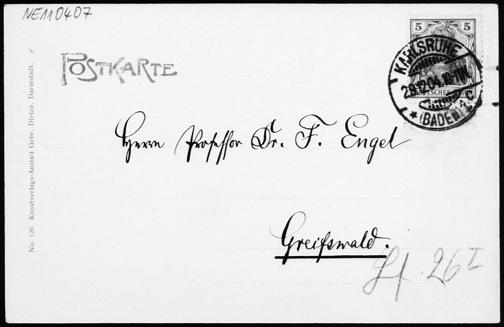 NE110407
5 5
POSTKARTE
KARLSRUHE
29.12.04.10-11V.
*(BADEN)
Herrn Professor Dr. F. Engel
Greifswald.
No. 120 Kunstverlags-Anstalt Gebr. Dietze, Darmstadt.